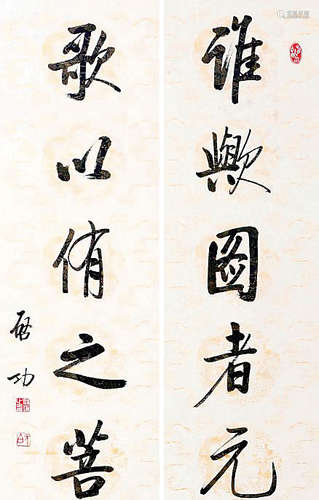 谁欤图者元
歌以侑之菩
启功